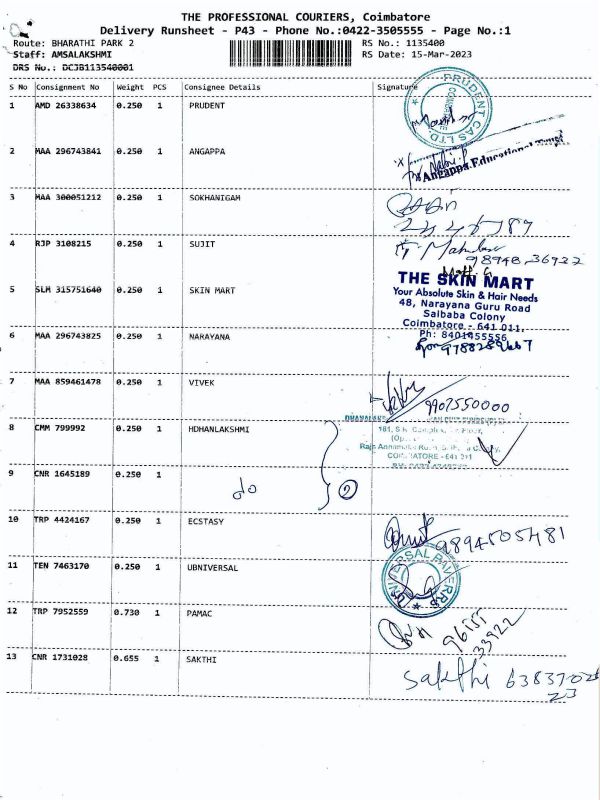 THE PROFESSIONAL COURIERS, Coimbatore
Delivery Runsheet - P43 - Phone No.:0422-3505555 - Page No.:1
Route: BHARATHI PARK 2 RS No.: 1135400
Staff: AMSALAKSHMI RS Date: 15-Mar-2023
DRS No.: DCJB113540001
S No Consignment No Weight PCS Consignee Details Signature
1 AMD 26338634 0.250 1 PRUDENT
PRUDENT GAS LTD.
2 MAA 296743841 0.250 1 ANGAPPA
Angappa Educational Trust
3 MAA 300051212 0.250 1 SOKHANIGAM
4 RJP 3108215 0.250 1 SUJIT
98948 36922
5 SLM 315751640 0.250 1 SKIN MART
THE SKIN MART
Your Absolute Skin & Hair Needs
48, Narayana Guru Road
Saibaba Colony
Coimbatore - 641 011.
Ph: 8401455556
6 MAA 296743825 0.250 1 NARAYANA
7 MAA 859461478 0.250 1 VIVEK
9907550000
8 CMM 799992 0.250 1 HDHANLAKSHMI
COIMBATORE - 641 011
9 CNR 1645189 0.250 1
do 2
10 TRP 4424167 0.250 1 ECSTASY
9894505481
11 TEN 7463170 0.250 1 UBNIVERSAL
12 TRP 7952559 0.730 1 PAMAC
96155
33922
13 CNR 1731028 0.655 1 SAKTHI
Sakthi 6383702
23